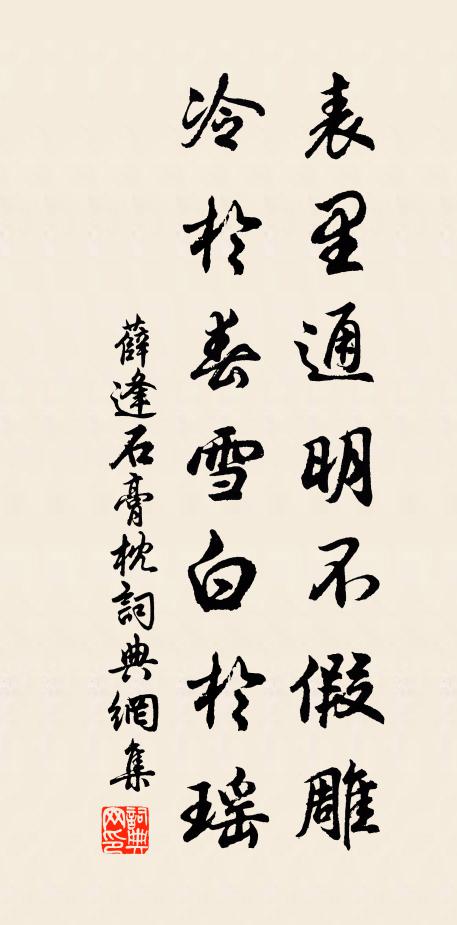 表里通明不假雕
冷於春雪白於瑶
薛逢石膏枕詞典網集
詞典網印